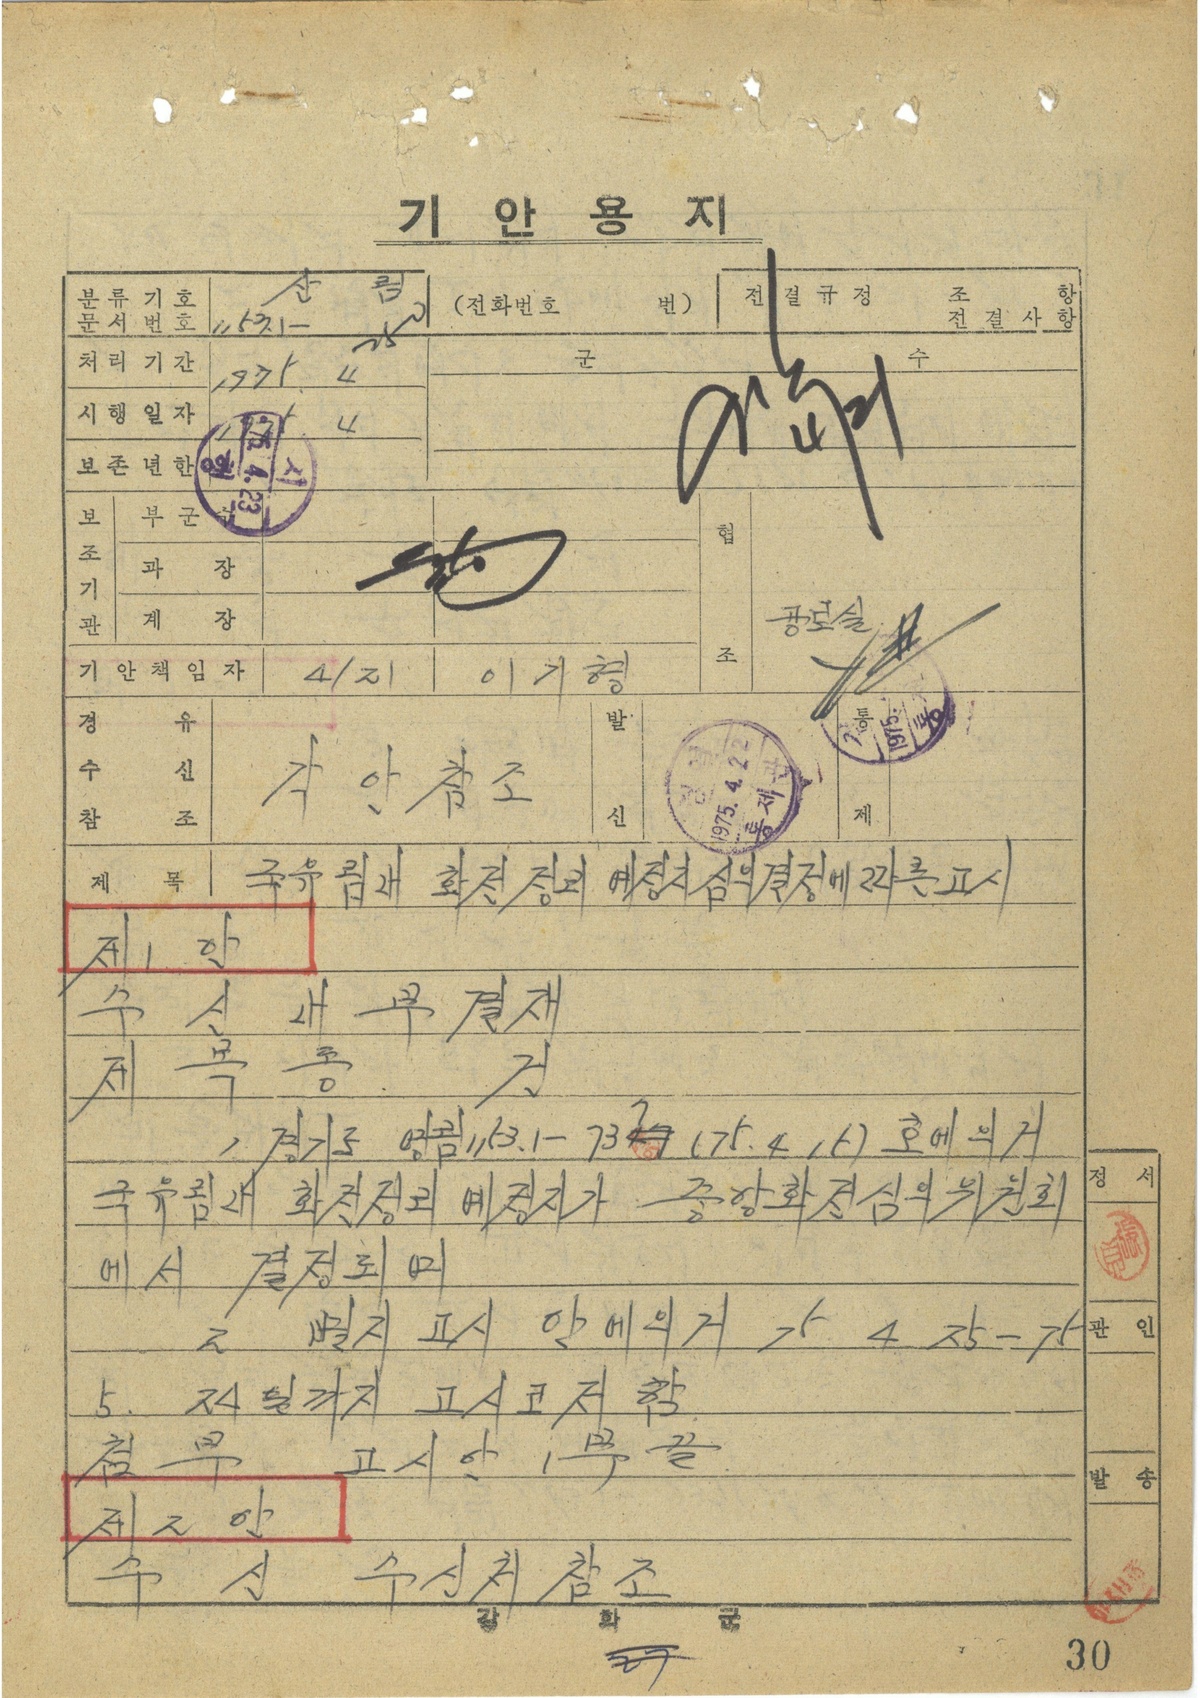 기 안 용 지
분류기호 문서번호 산 림 1153.1-
(전화번호 번)
전결규정 조 항 전결사항
처리기간 1975. 4
군 수
시행일자 4
보존년한
시행 75. 4. 23
보조기관
부군수
과 장
계 장
협 조
공보실
기안책임자 4/21 이기형
경 유
수 신
참 조
각 안 참조
발 신
통 제
1975. 4. 22 통제관
1975.
제 목 국유림내 화전정리 예정지심의결정에 따른 고시
제1 안
수 신 내 부 결재
제 목 동 건
1. 경기도 영림1153.1- 73 (75. 4. 15) 호에 의거
국유림내 화전정리 예정지가 중앙화전심의위원회
에서 결정되며
2 별지 고시 안에의거 75 4 25-75
5. 24일까지 고시코저 함
첨 부 고시안 1부 끝
제2 안
수 신 수신처 참조
정 서
관 인
발 송
강 화 군
30